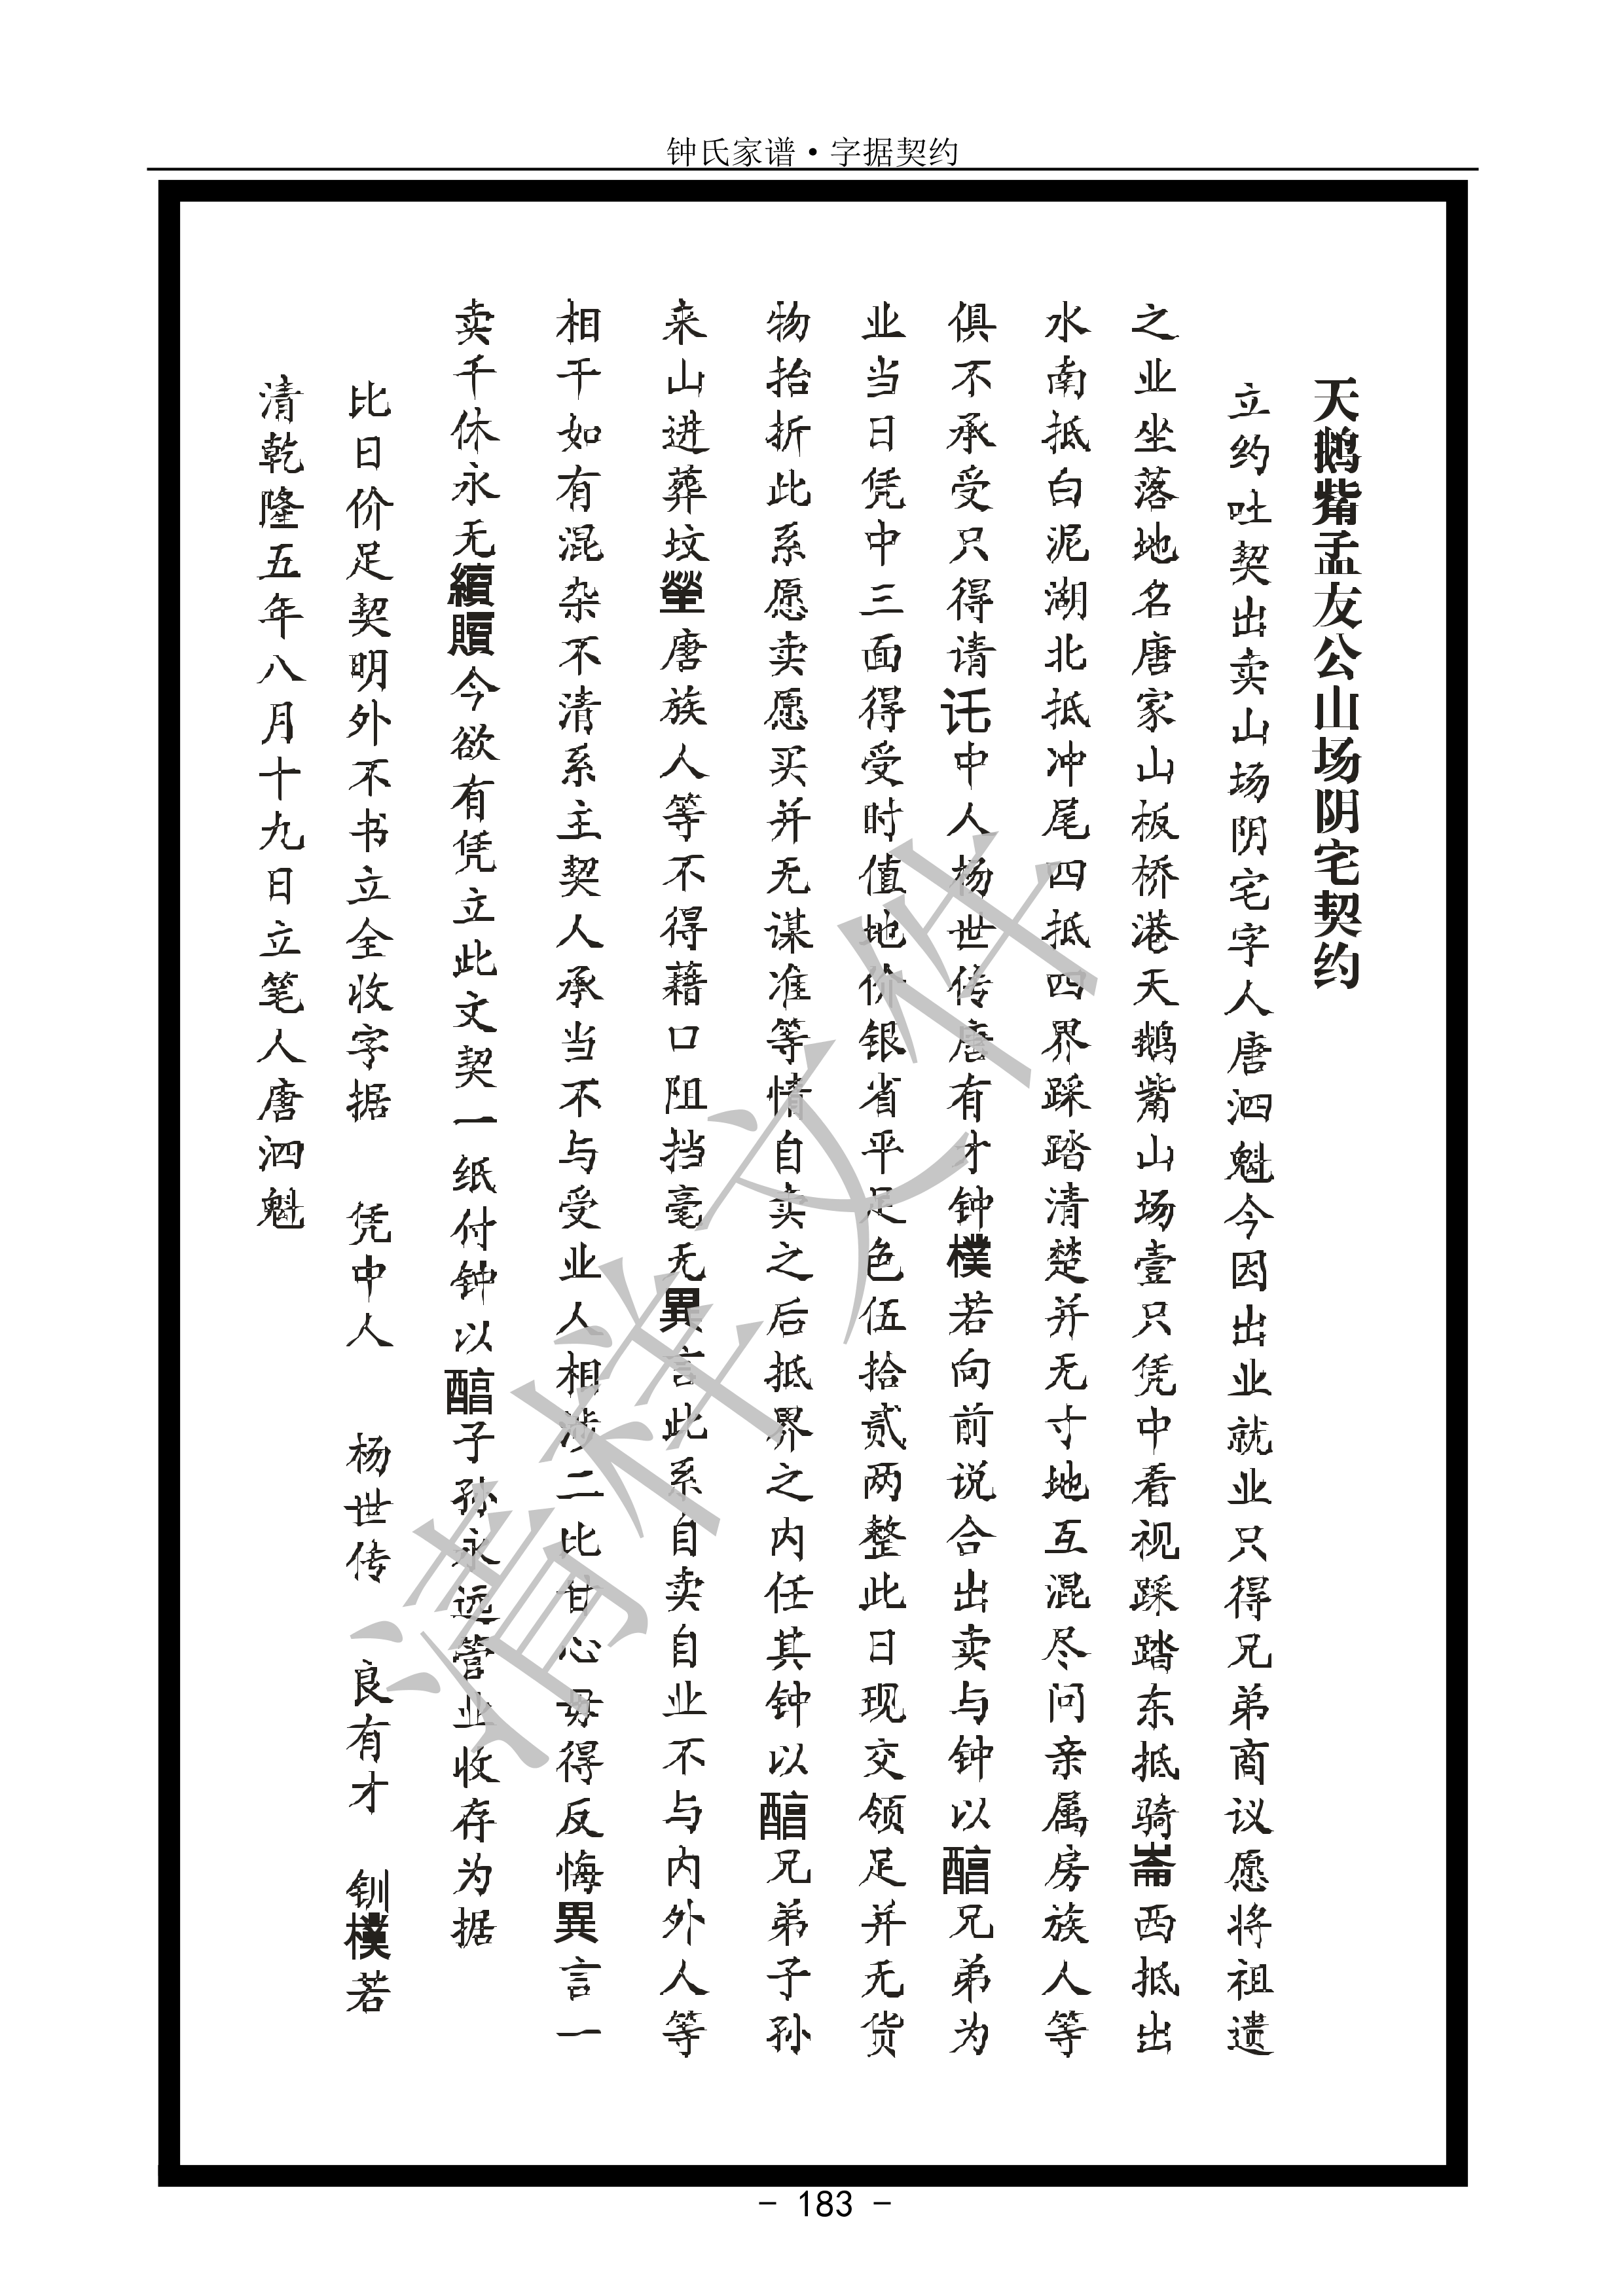 钟氏家谱·字据契约
天鹅觜孟友公山场阴宅契约
立约吐契出卖山场阴宅字人唐泗魁今因出业就业只得兄弟商议愿将祖遗
之业坐落地名唐家山板桥港天鹅觜山场壹只凭中看视踩踏东抵骑崙西抵出
水南抵白泥湖北抵冲尾四抵四界踩踏清楚并无寸地互混尽问亲属房族人等
俱不承受只得请讬中人杨世传唐有才钟樸若向前说合出卖与钟以醕兄弟为
业当日凭中三面得受时值地价银省平足色伍拾贰两整此日现交领足并无货
物抬折此系愿卖愿买并无谋准等情自卖之后抵界之内任其钟以醕兄弟子孙
来山进葬坟塋唐族人等不得藉口阻挡毫无異言此系自卖自业不与内外人等
相干如有混杂不清系主契人承当不与受业人相涉二比甘心毋得反悔異言一
卖千休永无續贖今欲有凭立此文契一纸付钟以醕子孙永远管业收存为据
比日价足契明外不书立全收字据 凭中人 杨世传 良有才 钏樸若
清乾隆五年八月十九日立笔人唐泗魁
清样文件
- 183 -